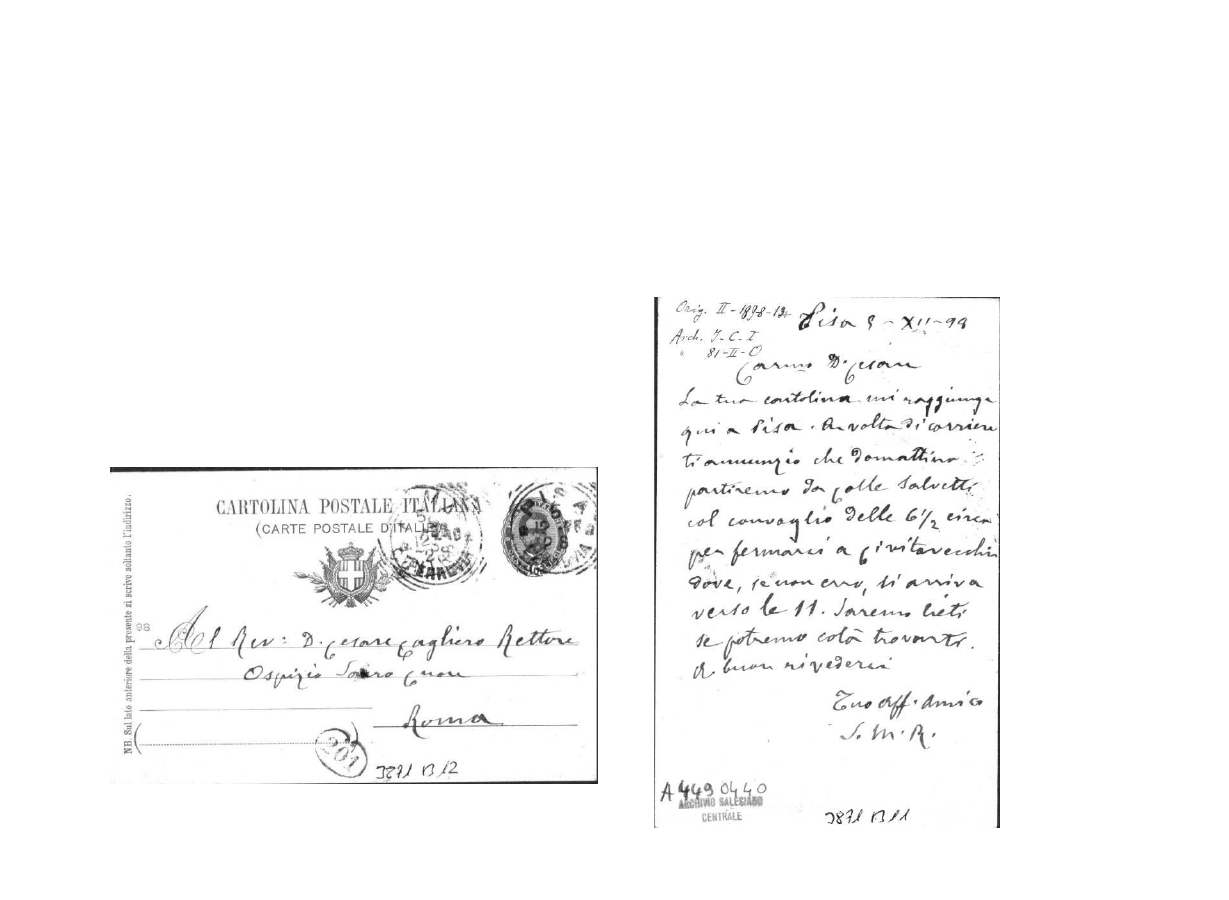 CARTOLINA POSTALE ITALIANA
(CARTE POSTALE D'ITALIE)
NB. Sul lato anteriore della presente si scrive soltanto l'indirizzo.
98
Al Rev: D. Cesare Cagliero Rettore
Ospizio Sacro Cuore
Roma
201
3871 B 12
Orig. II-1898-12
Arch. I-C-I
" 81-II-O
Pisa 8-XII-98
Carmo D. Cesare
La tua cartolina mi raggiunge
qui a Pisa. A volta di corriere
ti annunzio che domattina
partiremo da Colle Salvetti
col convoglio delle 6 1/2 circa
per fermarci a Civitavecchia
dove, se non erro, si arriva
verso le 11. Saremo lieti
se potremo colà trovarti.
A buon rivederci
Tuo aff. amico
S. M. R.
A 449 04 40
ARCHIVIO SALESIANO
CENTRALE
3871 B 11